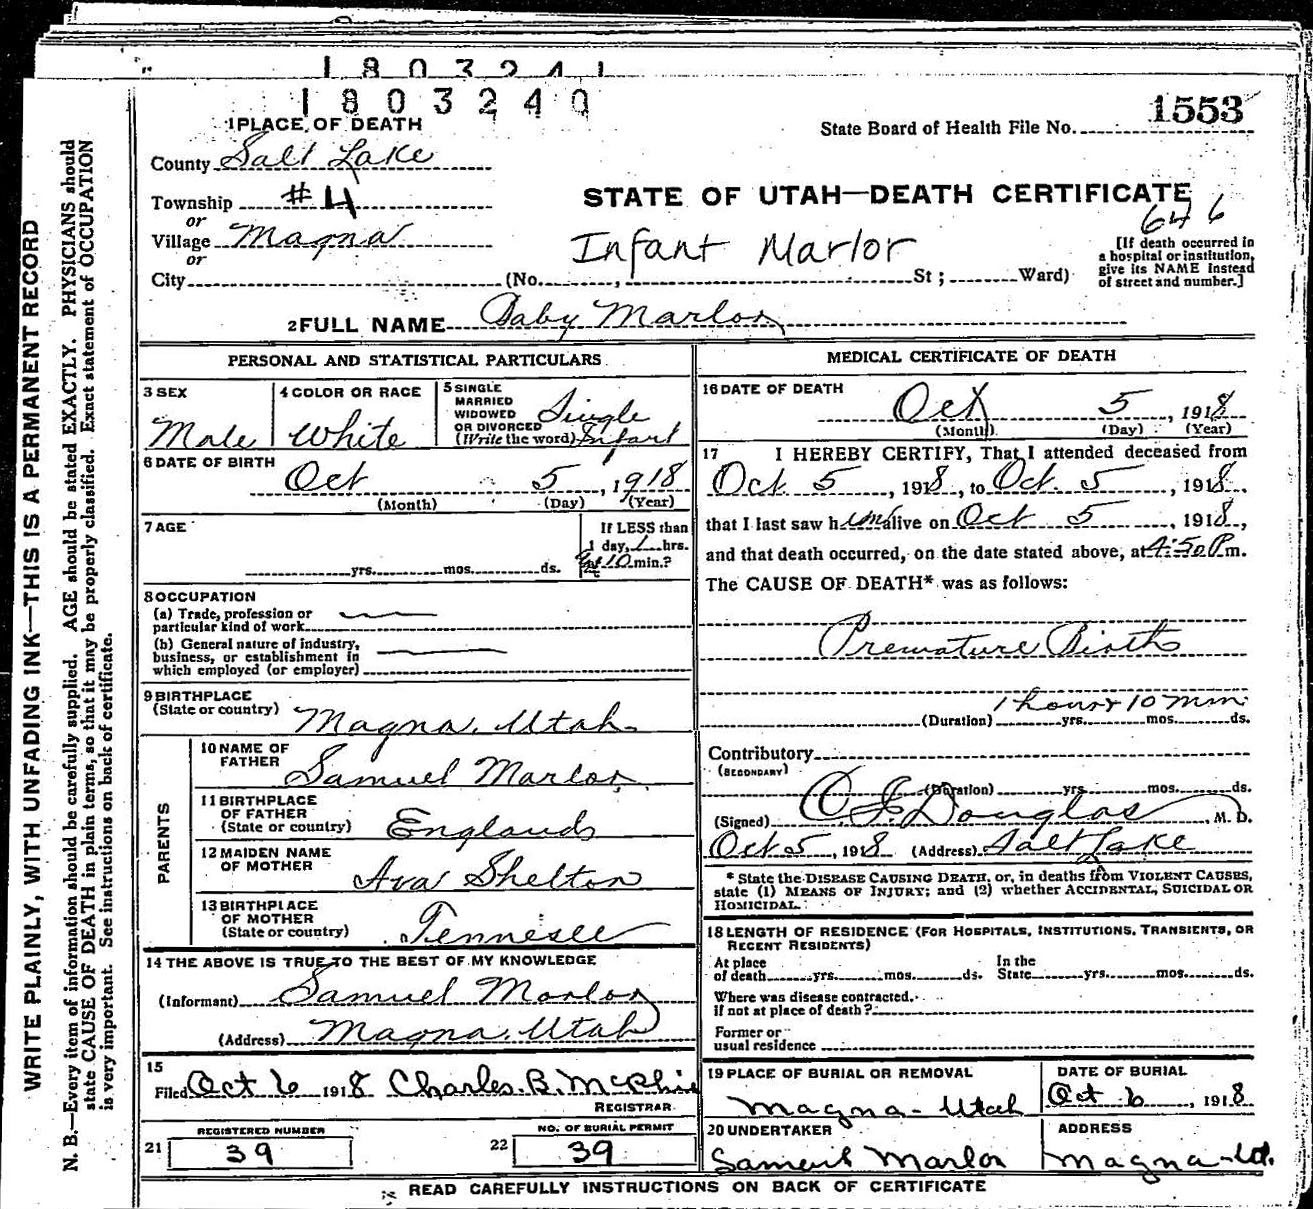 1803241
1803240
1 PLACE OF DEATH
State Board of Health File No. 1553
County Salt Lake
Township #4
STATE OF UTAH—DEATH CERTIFICATE
646
or
Village Magna
Infant Marlor
[If death occurred in a hospital or institution, give its NAME instead of street and number.]
or
City (No. , St ; Ward)
2 FULL NAME Baby Marlor
PERSONAL AND STATISTICAL PARTICULARS
3 SEX Male
4 COLOR OR RACE White
5 SINGLE MARRIED WIDOWED OR DIVORCED (Write the word) Single Infant
6 DATE OF BIRTH Oct 5, 1918
(Month) (Day) (Year)
7 AGE
yrs. mos. ds.
If LESS than
1 day, 1 hrs.
10 min.?
8 OCCUPATION
(a) Trade, profession or
particular kind of work
(b) General nature of industry,
business, or establishment in
which employed (or employer)
9 BIRTHPLACE
(State or country) Magna, Utah
PARENTS
10 NAME OF FATHER Samuel Marlor
11 BIRTHPLACE OF FATHER (State or country) England
12 MAIDEN NAME OF MOTHER Ava Shelton
13 BIRTHPLACE OF MOTHER (State or country) Tennesee
14 THE ABOVE IS TRUE TO THE BEST OF MY KNOWLEDGE
(Informant) Samuel Marlor
(Address) Magna, Utah
15
Filed Oct 6 1918 Charles B. McPhie
REGISTRAR
REGISTERED NUMBER
21 39
NO. OF BURIAL PERMIT
22 39
MEDICAL CERTIFICATE OF DEATH
16 DATE OF DEATH Oct 5, 1918
(Month) (Day) (Year)
17 I HEREBY CERTIFY, That I attended deceased from
Oct. 5, 1918, to Oct. 5, 1918,
that I last saw him alive on Oct 5, 1918,
and that death occurred, on the date stated above, at 4:50 P.m.
The CAUSE OF DEATH* was as follows:
Premature Birth
1 hour + 10 min
(Duration) yrs. mos. ds.
Contributory
(SECONDARY)
(Duration) yrs. mos. ds.
(Signed) Douglas, M. D.
Oct 5, 1918 (Address) Salt Lake
* State the DISEASE CAUSING DEATH, or, in deaths from VIOLENT CAUSES,
state (1) MEANS OF INJURY; and (2) whether ACCIDENTAL, SUICIDAL OR
HOMICIDAL.
18 LENGTH OF RESIDENCE (FOR HOSPITALS, INSTITUTIONS, TRANSIENTS, OR
RECENT RESIDENTS)
At place In the
of death yrs. mos. ds. State yrs. mos. ds.
Where was disease contracted,
if not at place of death?
Former or
usual residence
19 PLACE OF BURIAL OR REMOVAL
Magna - Utah
DATE OF BURIAL
Oct 6, 1918
20 UNDERTAKER
Samuel Marlor
ADDRESS
Magna - Ut.
READ CAREFULLY INSTRUCTIONS ON BACK OF CERTIFICATE
WRITE PLAINLY, WITH UNFADING INK—THIS IS A PERMANENT RECORD
N. B.—Every item of information should be carefully supplied. AGE should be stated EXACTLY. PHYSICIANS should
state CAUSE OF DEATH in plain terms, so that it may be properly classified. Exact statement of OCCUPATION
is very important. See instructions on back of certificate.